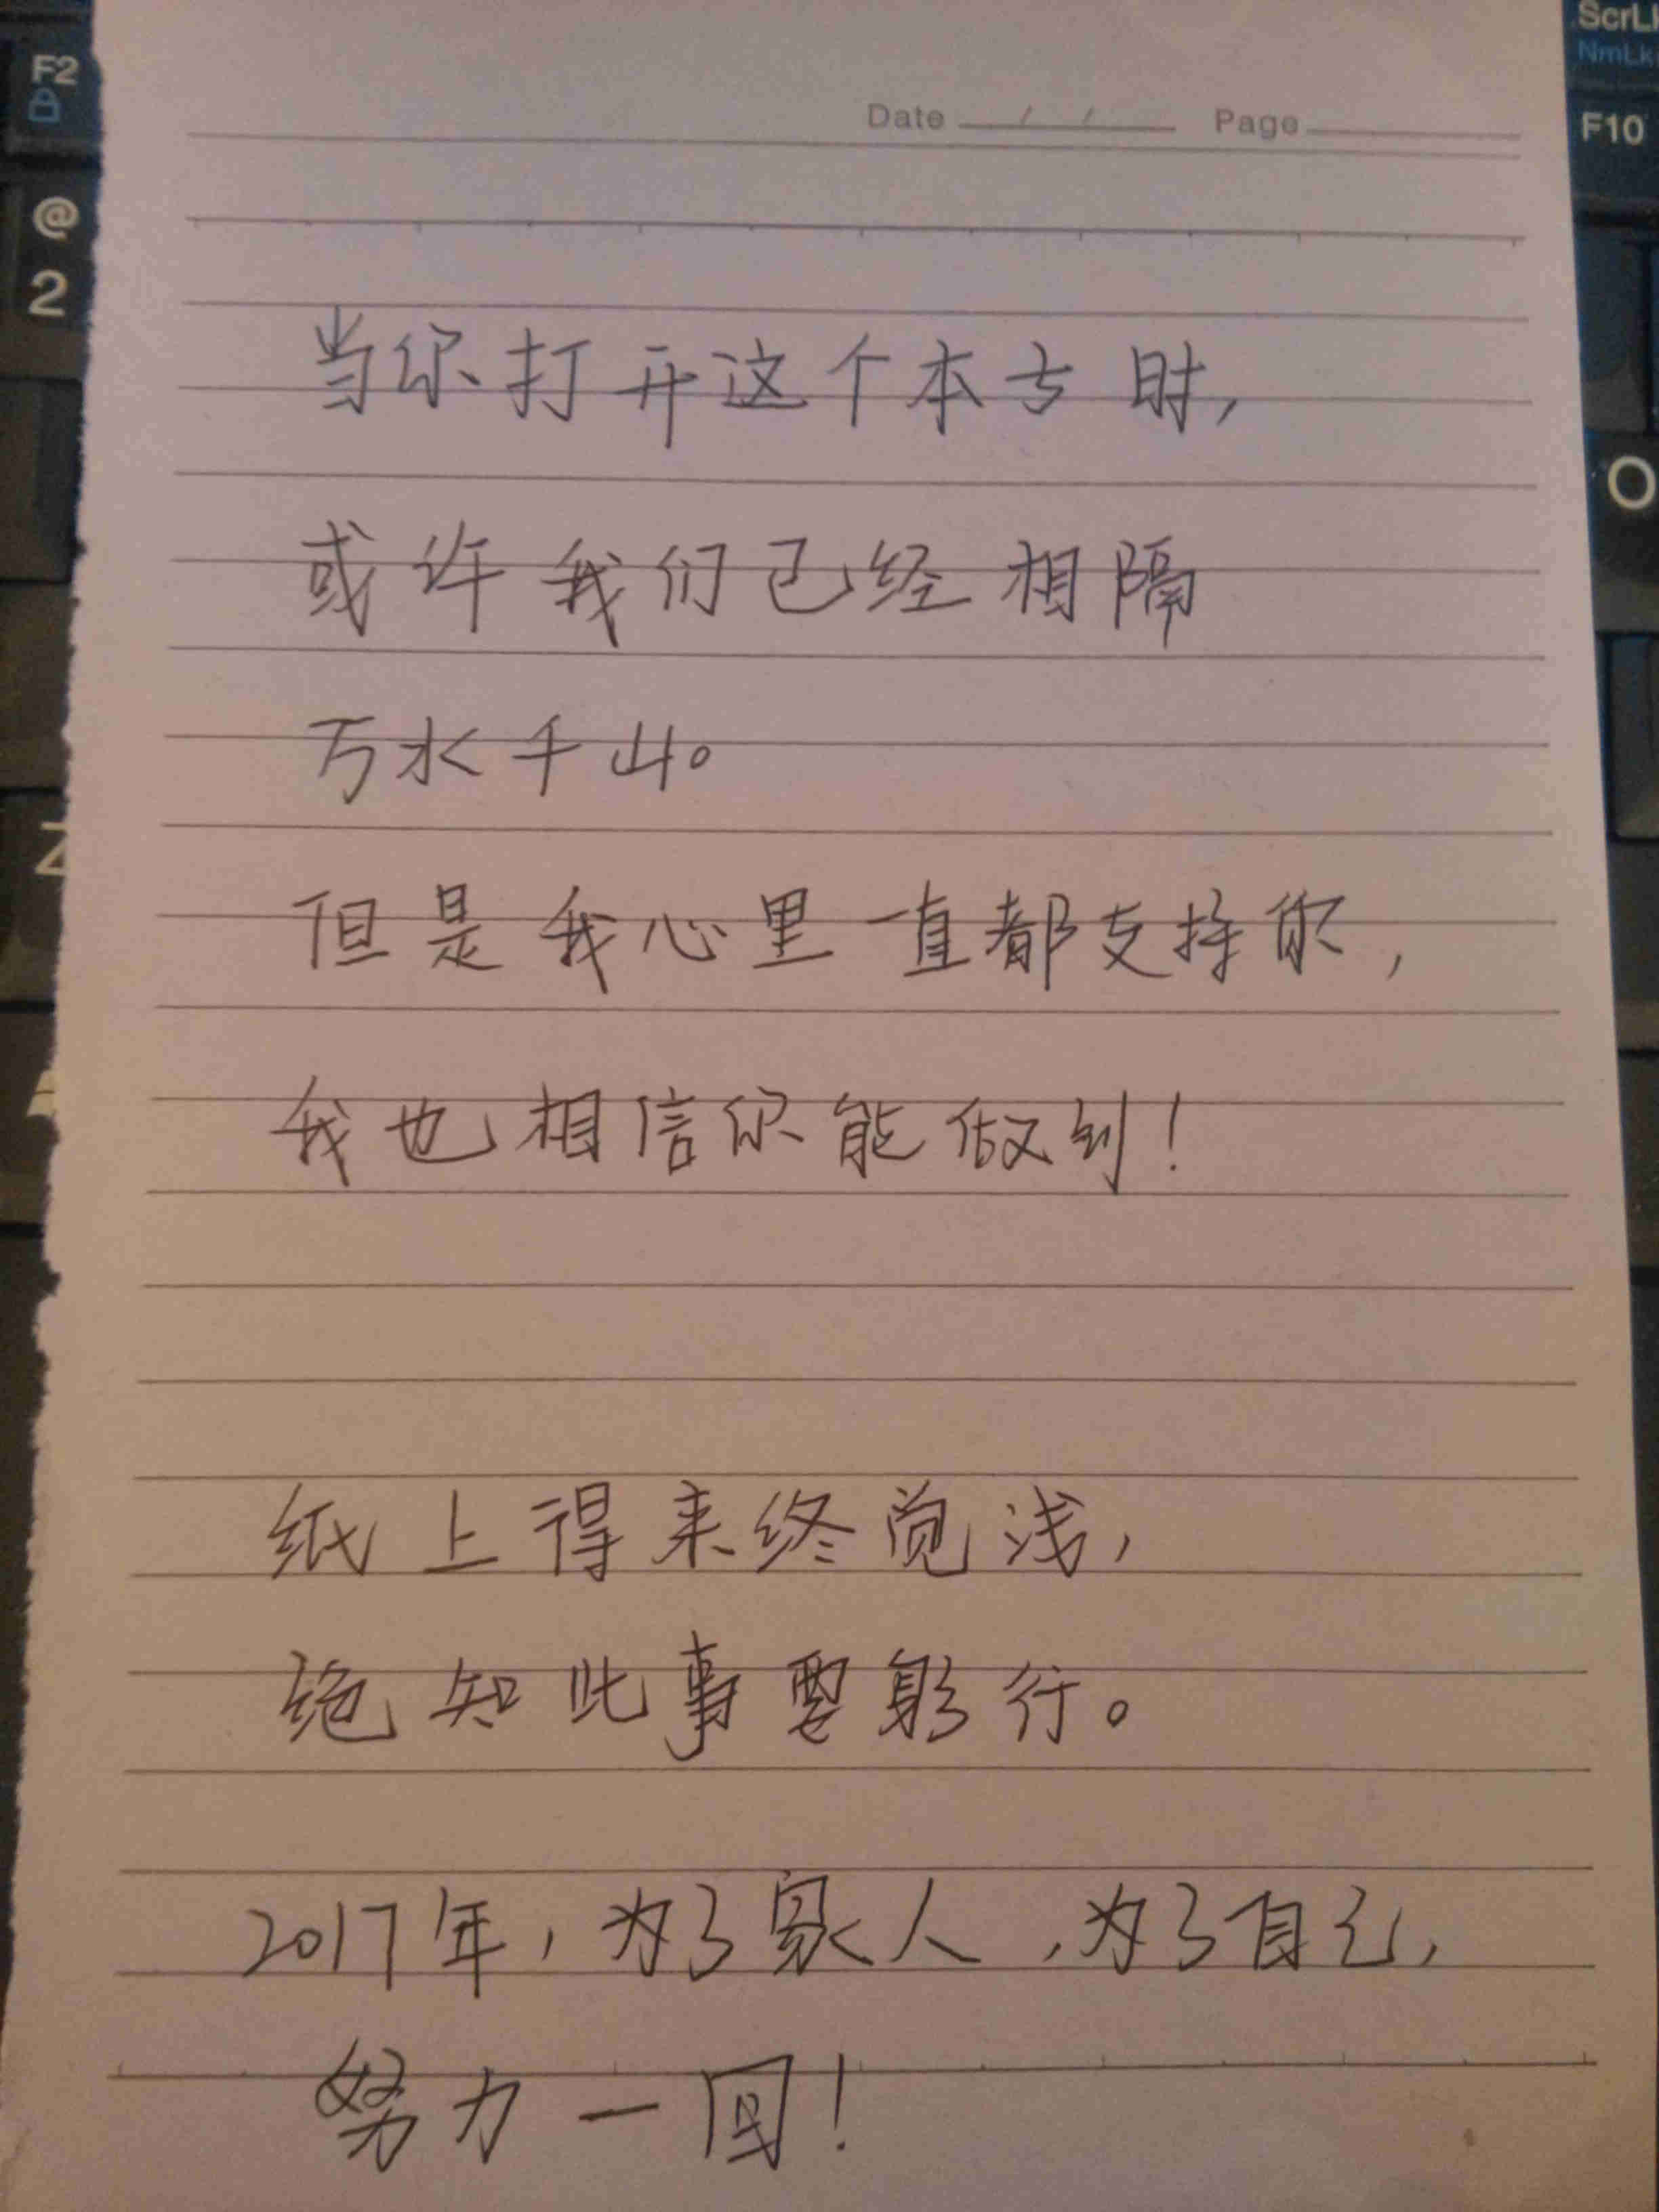 ScrLk
NmLk
F2
F10
@
2
O
Z
Date / / Page
当你打开这个本子时,
或许我们已经相隔
万水千山。
但是我心里一直都支持你,
我也相信你能做到!
纸上得来终觉浅,
绝知此事要躬行。
2017年,为了家人,为了自己,
努力一回!